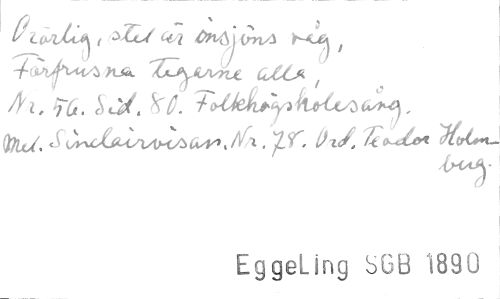 Orörlig, stel är insjöns våg,
Förfrusna tegarne alla,
Nr. 50. Sid. 80. Folkhögskolesång.
Mel. Sinclairvisan. Nr. 78. Ord. Teodor Holm-
berg.
EggeLing SGB 1890